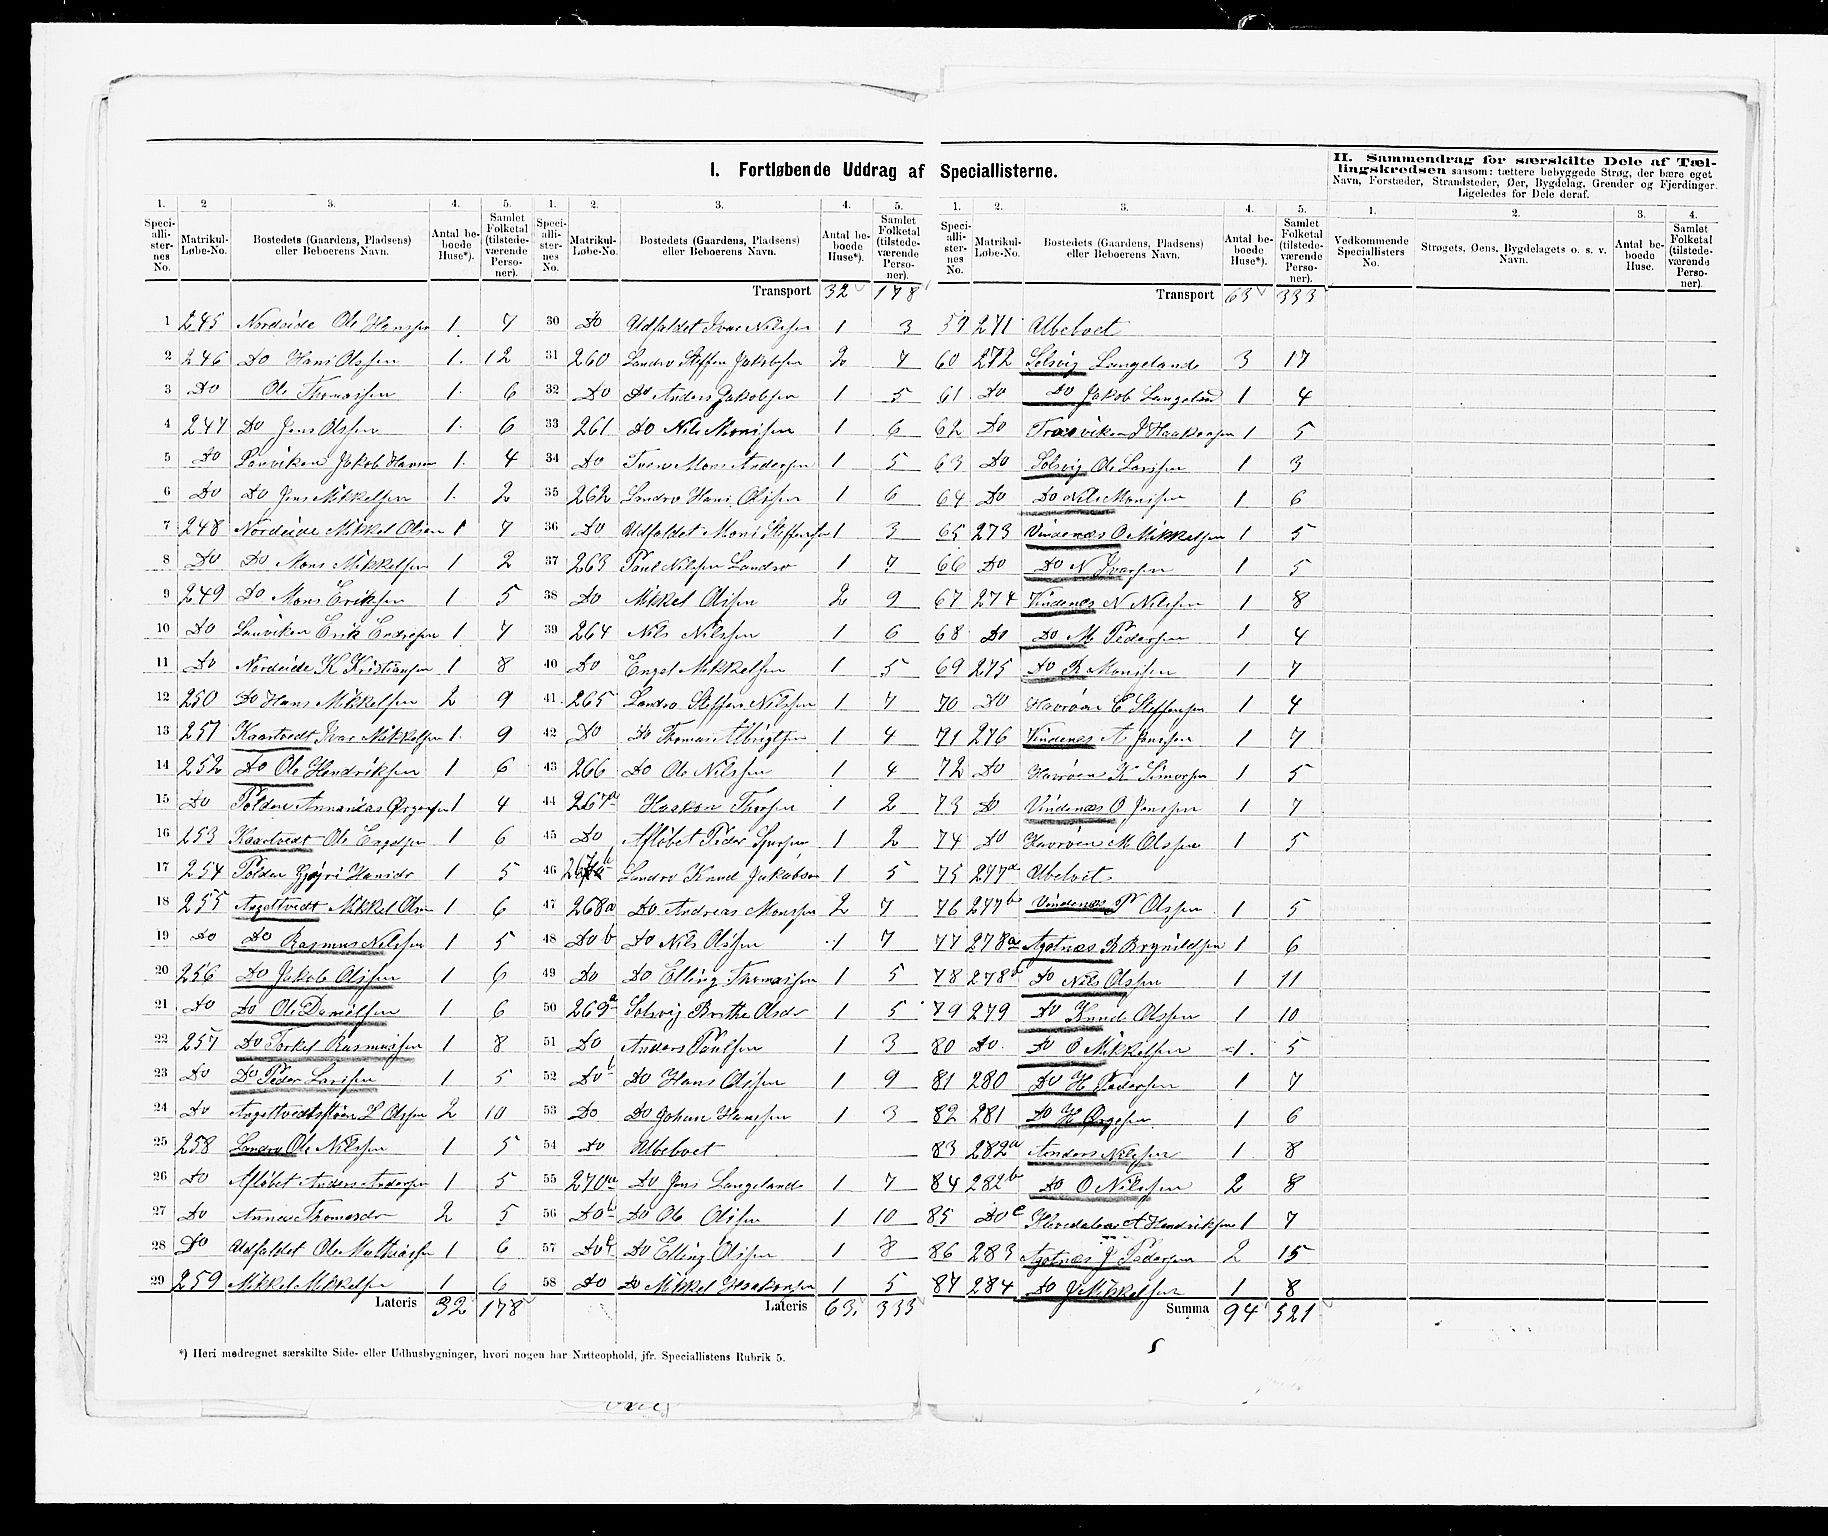 I. Fortløbende Uddrag af Speciallisterne.
II. Sammendrag for særskilte Dele af Tællingskredsen saasom: tættere bebyggede Strøg, der bære eget Navn, Forstæder, Strandsteder, Øer, Bygdelag, Grender og Fjerdinger. Ligeledes for Dele deraf.
1. 2 3. 4. 5.
Speciallisternes No. Matrikul-Løbe-No. Bostedets (Gaardens, Pladsens) eller Beboerens Navn. Antal beboede Huse*). Samlet Folketal (tilstedeværende Personer).
1 245 Nordeide Ole Hanssen 1. 7
2 246 Do Hans Olssen 1. 12
3 Do Ole Thomassen 1. 6
4 247 Do Jens Olssen 1. 6
5 Do Lanviken Jakob Hansen 1. 4
6 Do Do Jens Mikkelsen 1. 2
7 248 Nordeide Mikkel Olsen 1 7
8 Do Do Mons Mikkelsen 1 2
9 249 Do Mons Eriksen 1 5
10 Do Lanviken Erik Endresen 1 7
11 Do Nordeide K Kristiansen 1 8
12 250 Do Hans Mikkelsen 2 9
13 251 Kaartvedt Ivar Mikkelsen 1. 9
14 252 Do Ole Hendriksen 1 6
15 Do Polden Annanias Ørgensen 1 4
16 253 Kaartvedt Ole Engelsen 1 6
17 254 Polden Gjøri Hansdr 1 5
18 255 Angeltvedt Mikkel Olsen 1 6
19 Do Do Rasmus Nilssen 1 5
20 256 Do Jakob Olssen 1 6
21 Do Do Ole Danielsen 1 6
22 257 Do Torkel Rasmussen 1 8
23 Do Do Peder Larssen 1 5
24 Do Angeltvedt L Olssen 2 10
25 258 Landro Ole Nilssen 1 5
26 Do Afløbet Anders Andersen 1 5
27 Do Anna Thomasdr 2 5
28 Do Udfaldet Ole Mathiassen 1 6
29 259 Mikkel Mikkelsen 1 6
Lateris 32 178
*) Heri medregnet særskilte Side- eller Udhusbygninger, hvori nogen har Natteophold, jfr. Speciallistens Rubrik 5.
1. 2. 3. 4. 5.
Speciallisternes No. Matrikul-Løbe-No. Bostedets (Gaardens, Pladsens) eller Beboerens Navn. Antal beboede Huse*). Samlet Folketal (tilstedeværende Personer).
Transport 32 178
30 Do Udfaldet Ivar Nilssen 1 3
31 260 Landro Steffen Jakobsen 2 7
32 Do Do Anders Jakobsen 1 5
33 261 Do Nils Monssen 1 6
34 Do Mons Andersen 1 5
35 262 Landro Hans Olssen 1 6
36 Do Udfaldet Mons Steffensen 1 3
37 263 Paul Nilssen Landro 1 7
38 Do Mikkel Olssen 2 9
39 264 Nils Nilssen 1 6
40 Do Engel Mikkelsen 1 5
41. 265 Landro Steffen Nilssen 1 7
42 Do Do Thomas Albrigtsen 1 4
43 266 Do Ole Nilssen 1 4
44 267a Haakon Thorsen 1 2
45 Do Afløbet Peder 1 2
46 267b Landro Knud Jakobsen 1 5
47 268a Do Andreas Monssen 2 7
48 Do b Do Nils Olssen 1 7
49 Do Do Elling Thomassen 1 5
50 269a Solsvig Brithe Olsdr 1 5
51 Do Anders Paulsen 1 3
52 Do b Do Hans Olssen 1 9
53 Do Do Johan Hanssen 1 3
54 Do Ubeboet
55 270a Do Jens Langeland 1 7
56 Do b Do Ole Olssen 1 10
57 Do c Do Elling Olssen 1 8
58 Do Do Mikkel Haakonsen 1 5
Lateris 63. 333
1. 2. 3. 4. 5.
Speciallisternes No. Matrikul-Løbe-No. Bostedets (Gaardens, Pladsens) eller Beboerens Navn. Antal beboede Huse*). Samlet Folketal (tilstedeværende Personer).
Transport 63 333
59 271 Ubeboet
60 272 Solsvig Langeland 3 17
61 Do Do Jakob Langeland 1 4
62 Do Træsviken J Haakonsen 1 5
63 Do Solsvig Ole Larssen 1 3
64 Do Do Nils Monssen 1 6
65 273 Vindenæs O Mikkelsen 1 5
66 Do Do N Ivarsen 1 5
67 274 Vindenes N Nilssen 1 8
68 Do Do M Pedersen 1 4
69 275 Do R Monssen 1 7
70 Do Havrøen E Steffensen 1 4
71 276 Vindenes A Jonssen 1 7
72 Do Havrøen K Simonsen 1 5
73 Do Vindenæs O Jenssen 1 7
74 Do Havrøen M Olssen 1 5
75 277a Ubeboet
76 277b Vindenæs P Olssen 1 5
77 278a Agotnæs B Brynildsen 1 6
78 278b Do Nils Olssen 1 11
79 279 Do Knud Olssen 1 10
80 Do. Do O Mikkelsen 1. 5
81 280 Do H Pedersen 1 7
82 281 Do H Ørgesen 1 6
83 282a Anders Nilssen 1 8
84 282b Do O Nilssen 2 8
85 Do c A Hendriksen 1 7
86 283 Agotnæs J Pedersen 2 15
87 284 Do J Mikkelsen 1 8
Summa 94 521
1. 2. 3. 4.
Vedkommende Speciallisters No. Strøgets, Øens, Bygdelagets o. s. v. Navn. Antal beboede Huse. Samlet Folketal (tilstedeværende Personer).